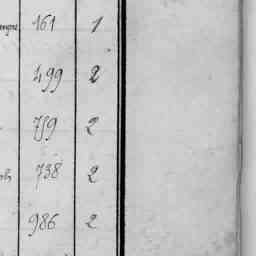 161 1
499 2
759 2
738 2
986 2